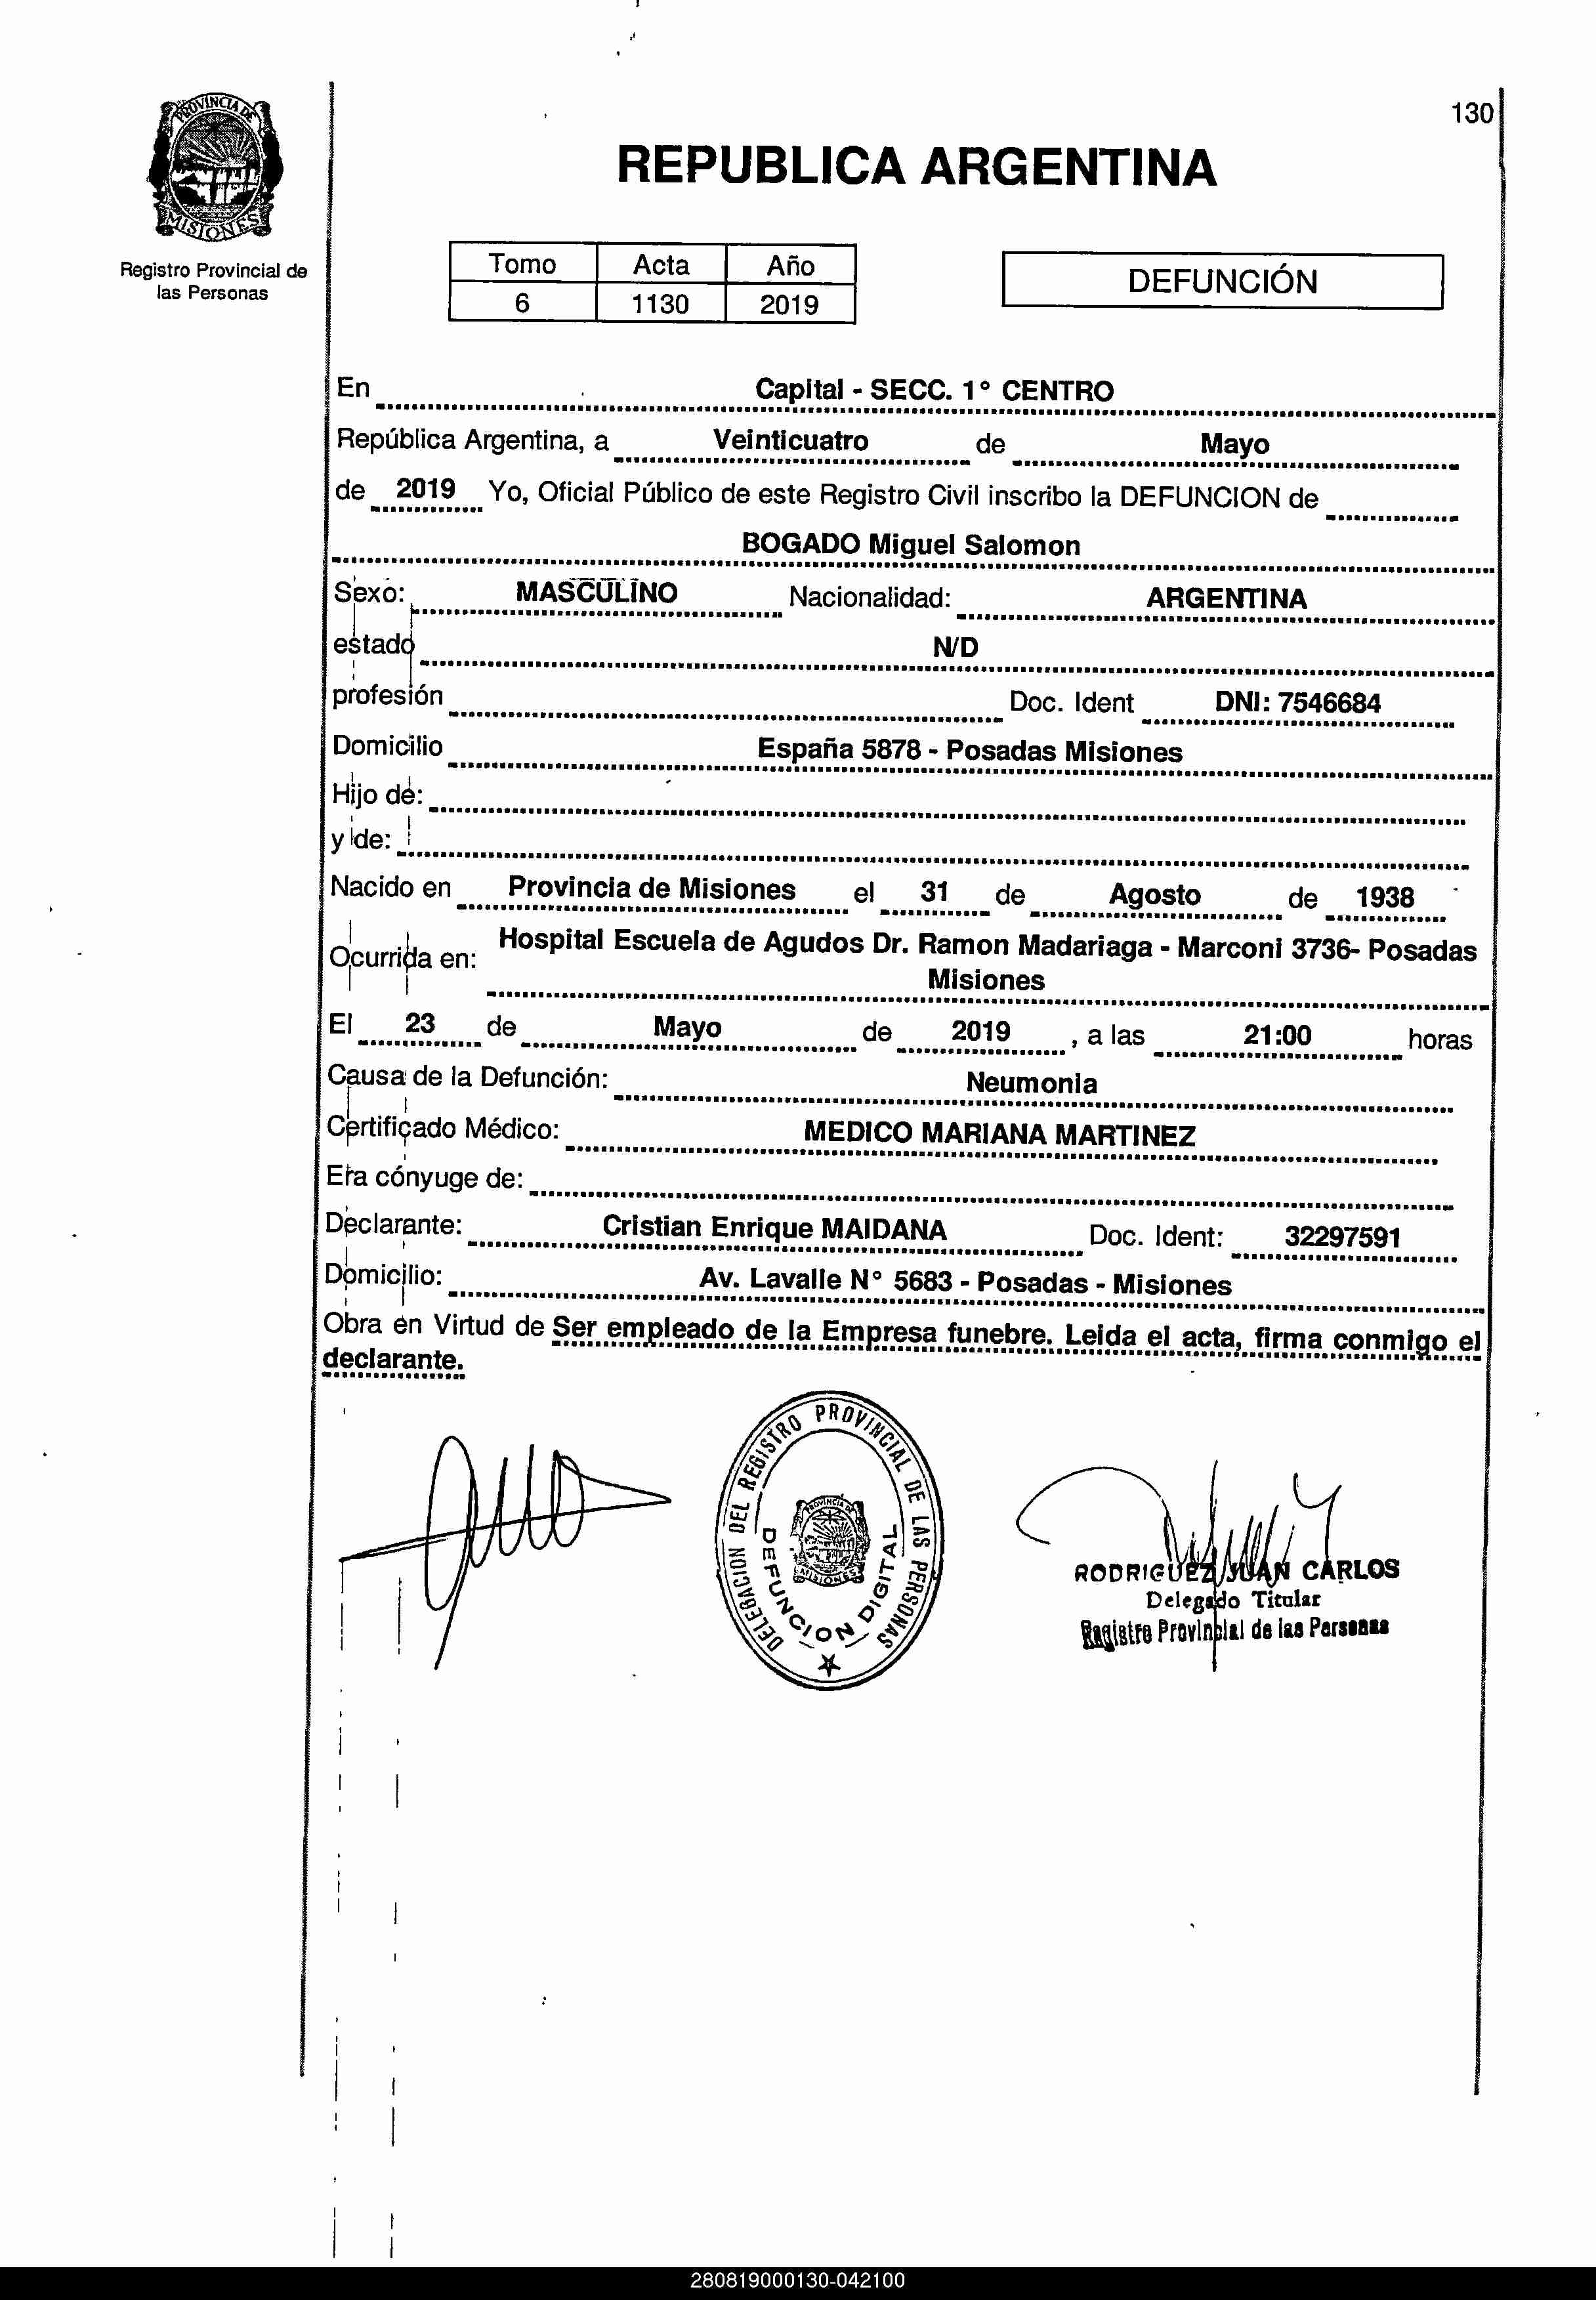 130
PROVINCIA DE
MISIONES
Registro Provincial de
las Personas
REPUBLICA ARGENTINA
Tomo Acta Año
6 1130 2019
DEFUNCIÓN
En Capital - SECC. 1° CENTRO
República Argentina, a Veinticuatro de Mayo
de 2019 Yo, Oficial Público de este Registro Civil inscribo la DEFUNCION de
BOGADO Miguel Salomon
Sexo: MASCULINO Nacionalidad: ARGENTINA
estado N/D
profesión Doc. Ident DNI: 7546684
Domicilio España 5878 - Posadas Misiones
Hijo de:
y de:
Nacido en Provincia de Misiones el 31 de Agosto de 1938
Ocurrida en: Hospital Escuela de Agudos Dr. Ramon Madariaga - Marconi 3736- Posadas
Misiones
El 23 de Mayo de 2019 , a las 21:00 horas
Causa de la Defunción: Neumonia
Certificado Médico: MEDICO MARIANA MARTINEZ
Era cónyuge de:
Declarante: Cristian Enrique MAIDANA Doc. Ident: 32297591
Domicilio: Av. Lavalle N° 5683 - Posadas - Misiones
Obra en Virtud de Ser empleado de la Empresa funebre. Leida el acta, firma conmigo el
declarante.
DELEGACION DEL REGISTRO PROVINCIAL DE LAS PERSONAS
PROVINCIA DE
MISIONES
DEFUNCION DIGITAL
RODRIGUEZ JUAN CARLOS
Delegado Titular
Registro Provincial de las Personas
280819000130-042100